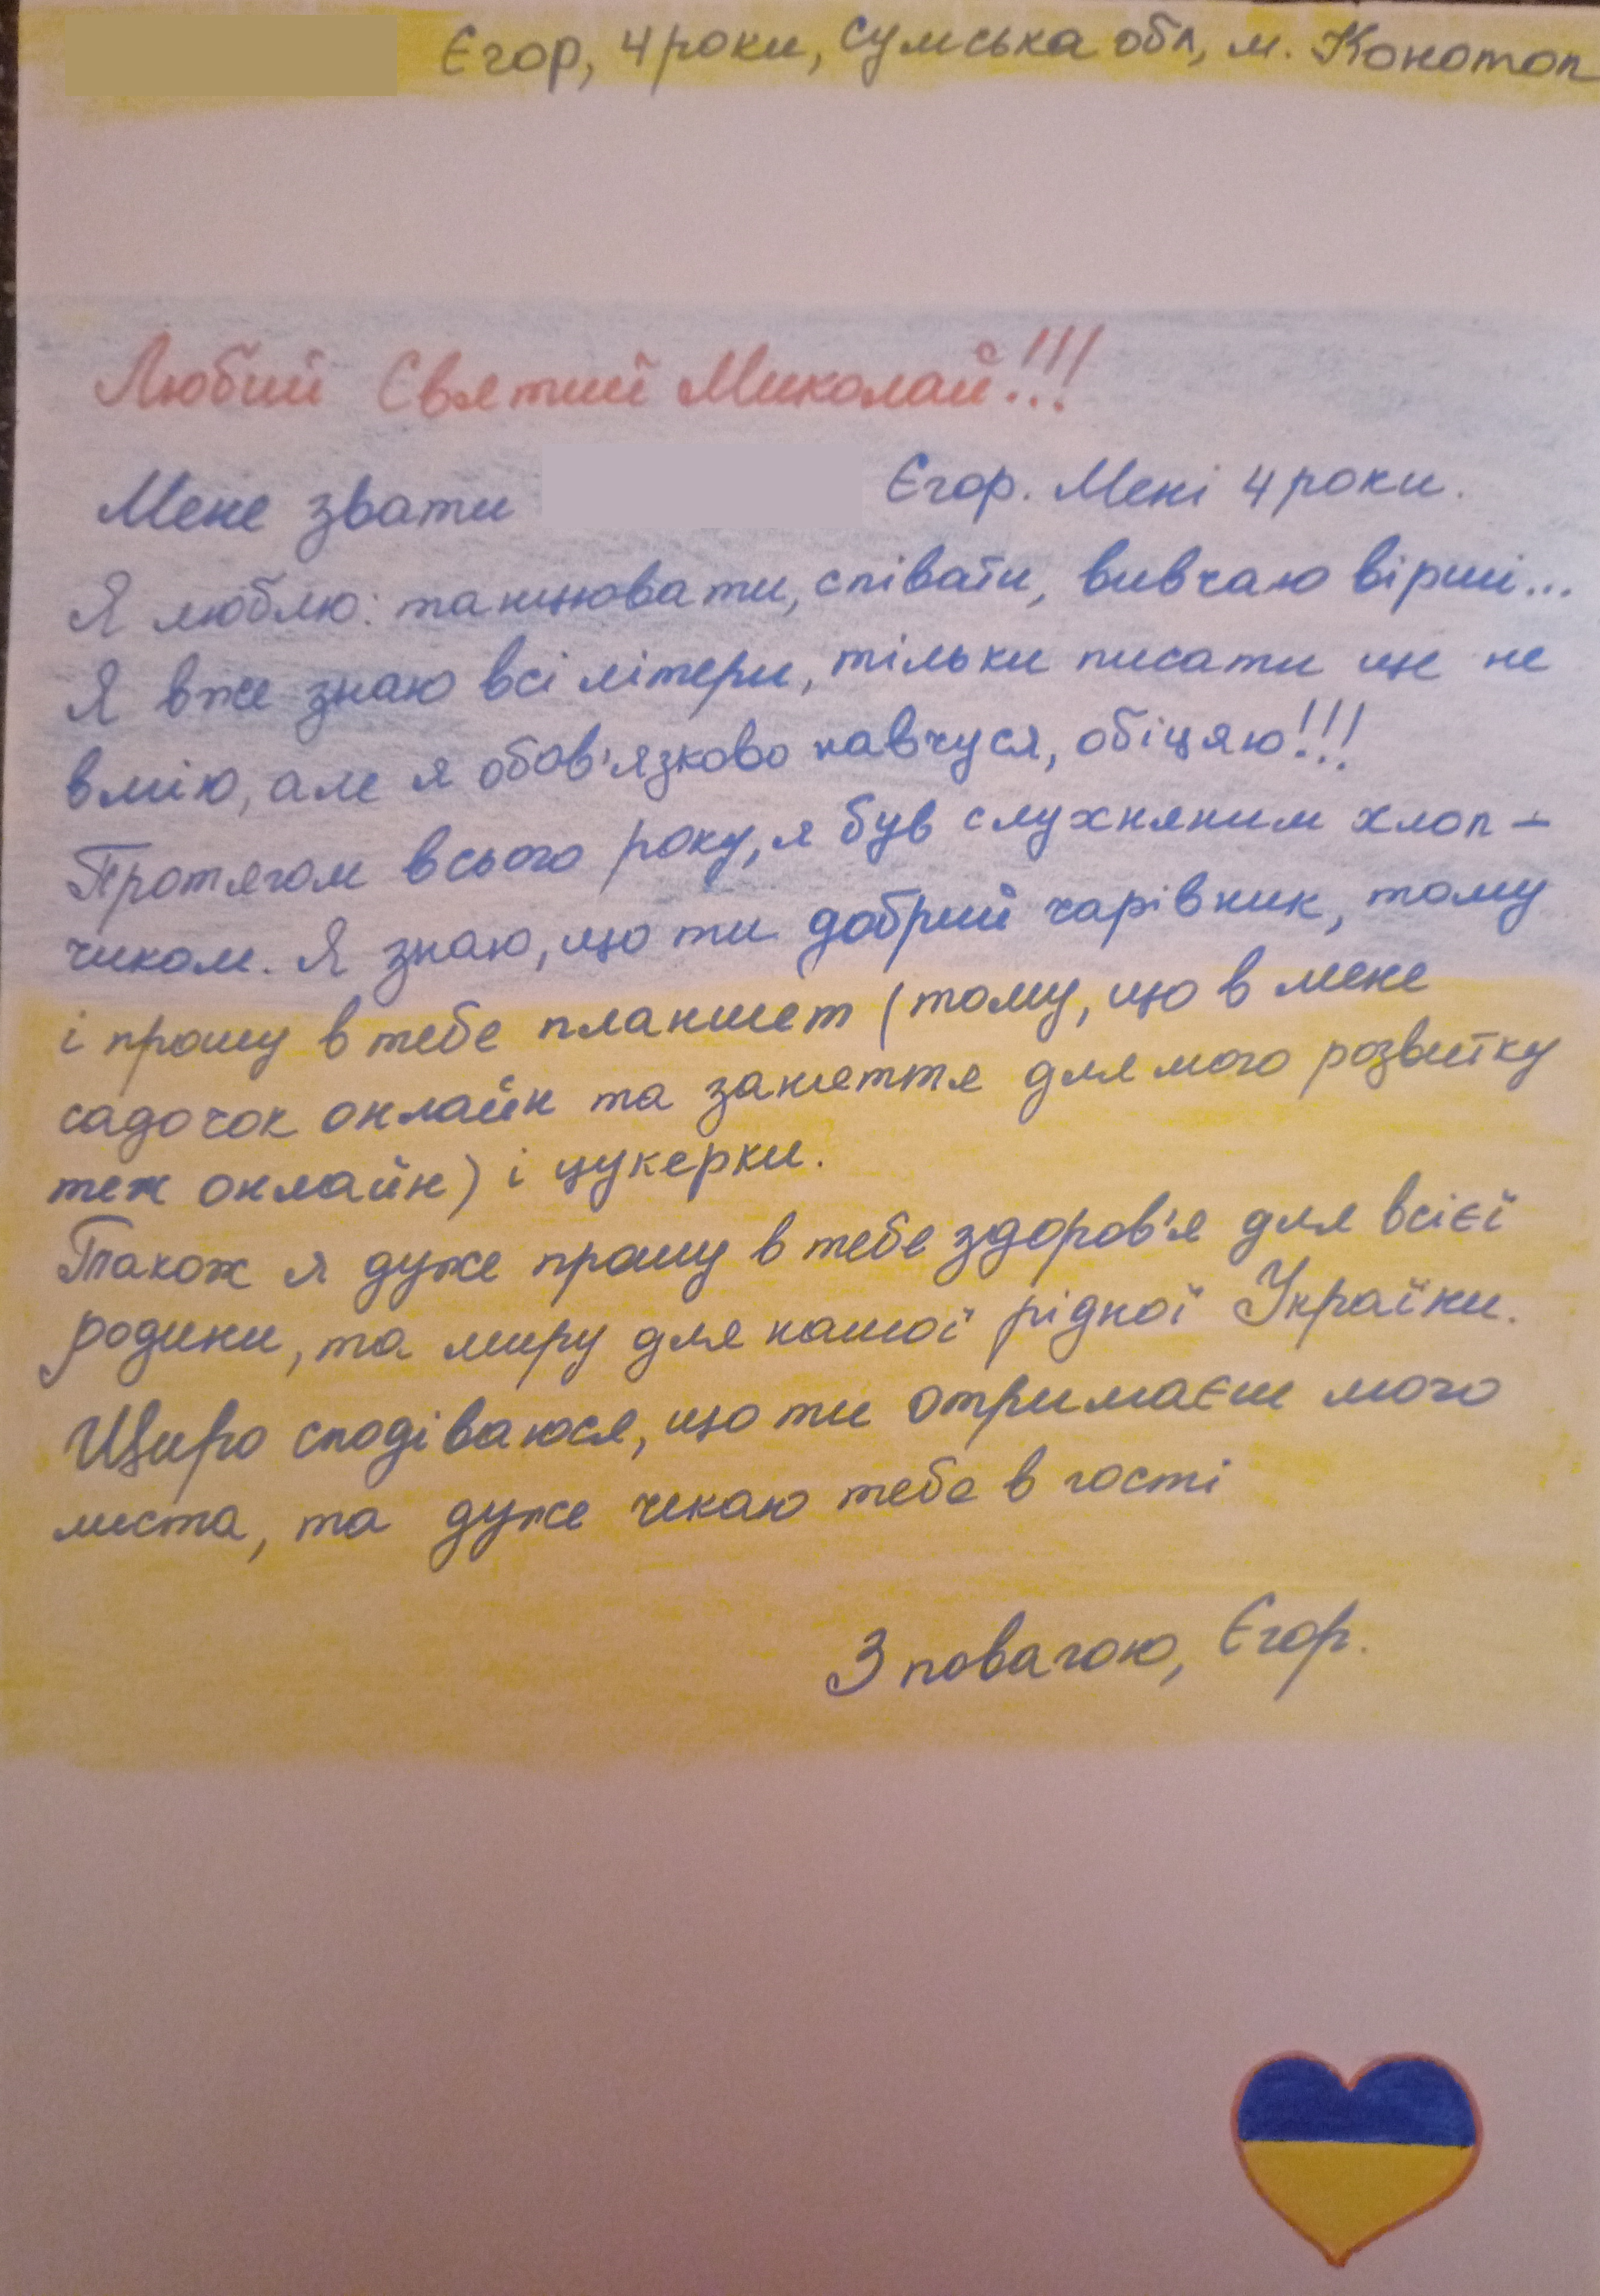 Єгор, 4 роки, Сумська обл, м. Конотоп
Любий Святий Миколай!!!
Мене звати Єгор. Мені 4 роки.
Я люблю: танцювати, співати, вивчаю вірші...
Я вже знаю всі літери, тільки писати ще не
вмію, але я обов'язково навчуся, обіцяю!!!
Протягом всього року, я був слухняним хлоп-
чиком. Я знаю, що ти добрий чарівник, тому
і прошу в тебе планшет (тому, що в мене
садочок онлайн та заняття для мого розвитку
теж онлайн) і цукерки.
Також я дуже прошу в тебе здоров'я для всієї
родини, та миру для нашої рідної України.
Щиро сподіваюся, що ти отримаєш мого
листа, та дуже чекаю тебе в гості
З повагою, Єгор.